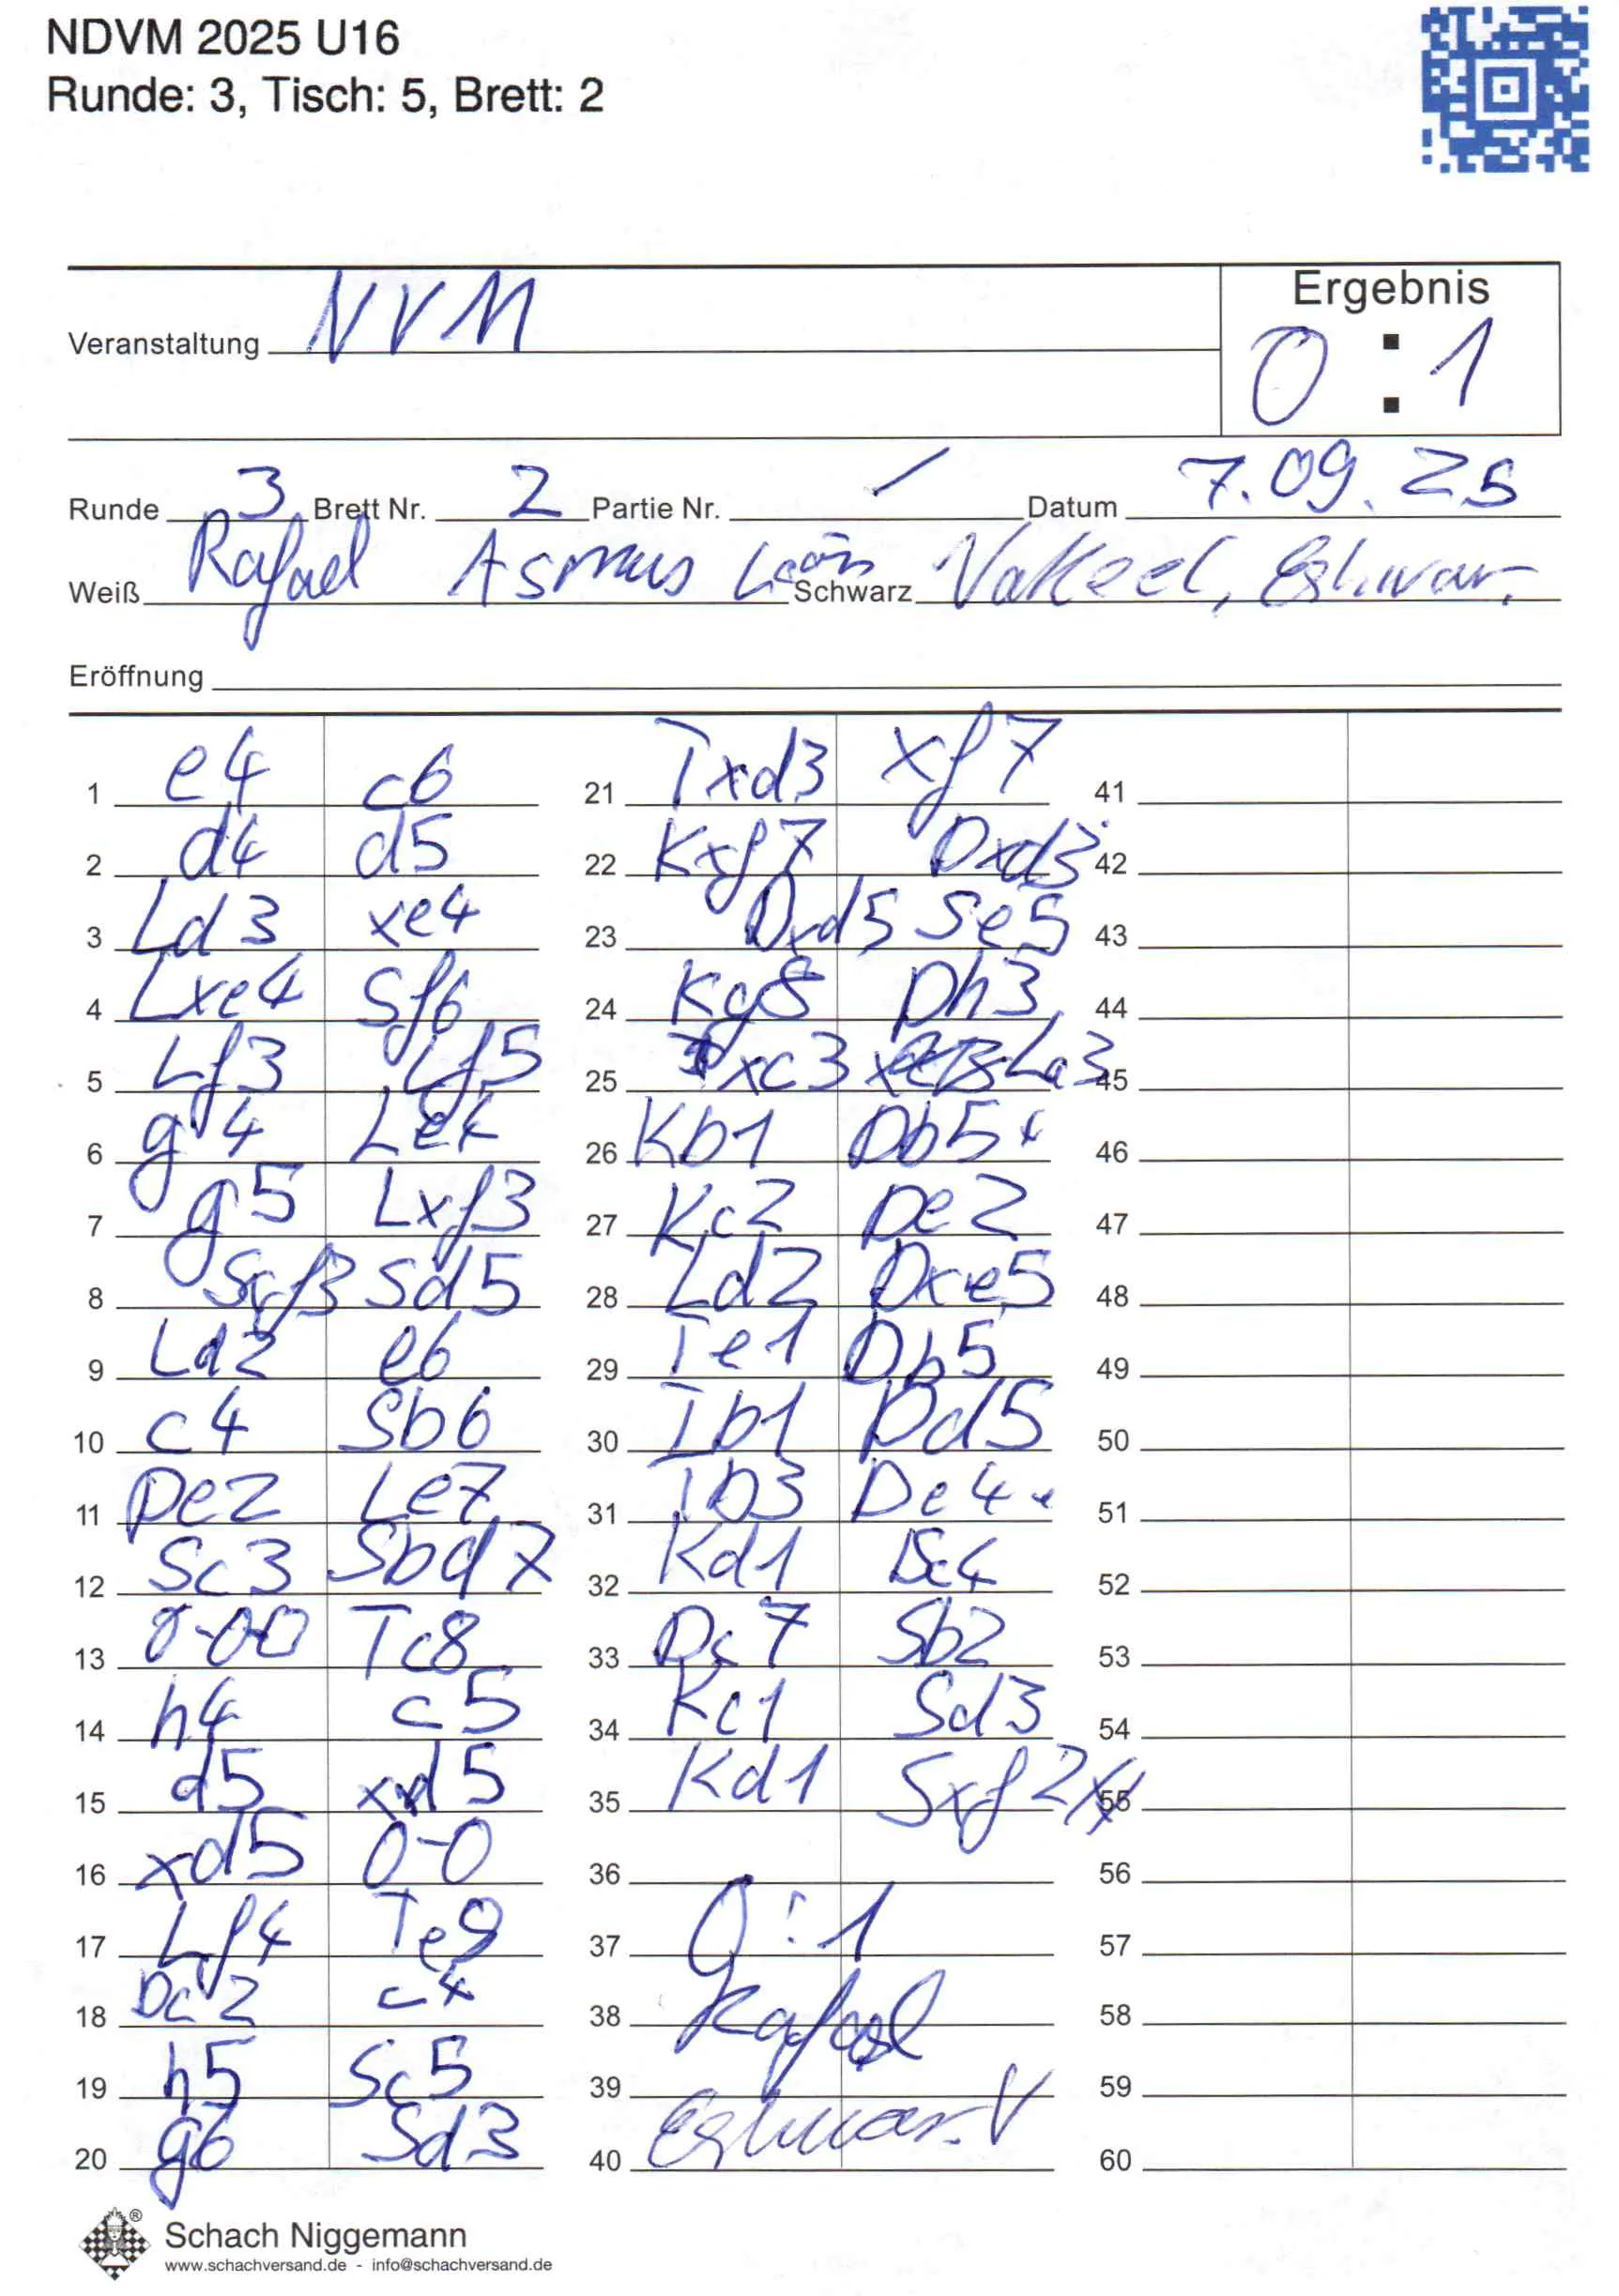 NDVM 2025 U16
Runde: 3, Tisch: 5, Brett: 2
Veranstaltung NVM
Ergebnis
0 : 1
Runde 3 Brett Nr. 2 Partie Nr. / Datum 7.09.25
Weiß Rafael Asmus León Schwarz Vakeel, Eshwar
Eröffnung
1 e4 c6
2 d4 d5
3 Ld3 xe4
4 Lxe4 Sf6
5 Lf3 Lf5
6 g4 Le4
7 g5 Lxf3
8 Sxf3 Sd5
9 Ld2 e6
10 c4 Sb6
11 De2 Le7
12 Sc3 Sbd7
13 0-00 Tc8
14 h4 c5
15 d5 xd5
16 xd5 0-0
17 Lf4 Te8
18 Dc2 c4
19 h5 Sc5
20 g6 Sd3
21 Txd3 xf7
22 Kxf7 Dxd3
23 Dxd5 Se5
24 Kg8 Dh3
25 xc3 La3
26 Kb1 Db5+
27 Kc2 De2
28 Ld2 Dxe5
29 Te1 Db5
30 Tb1 Dd5
31 Tb3 De4+
32 Kd1 Dc4
33 Dc7 Sb2
34 Kc1 Sd3
35 Kd1 Sxf2#
36
37 0:1
38 Rafael
39
40 Eshwar.V
41
42
43
44
45
46
47
48
49
50
51
52
53
54
55
56
57
58
59
60
Schach Niggemann
www.schachversand.de - info@schachversand.de